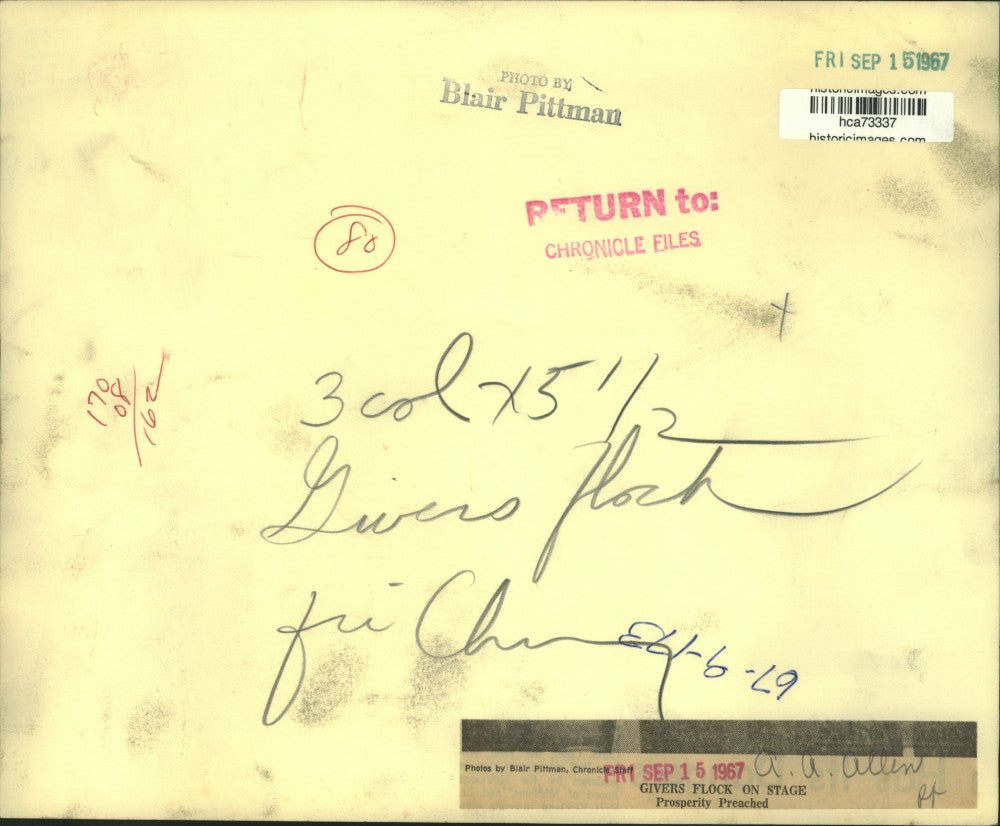 FRI SEP 15 1967
PHOTO BY
Blair Pittman
historicimages.com
hca73337
historicimages.com
RETURN to:
CHRONICLE FILES
80
X
3 col x 5 1/2
Givers Flock
fri
170
08
162
Photos by Blair Pittman, Chronicle Staff
FRI SEP 15 1967
A. A. Allen
GIVERS FLOCK ON STAGE
Prosperity Preached